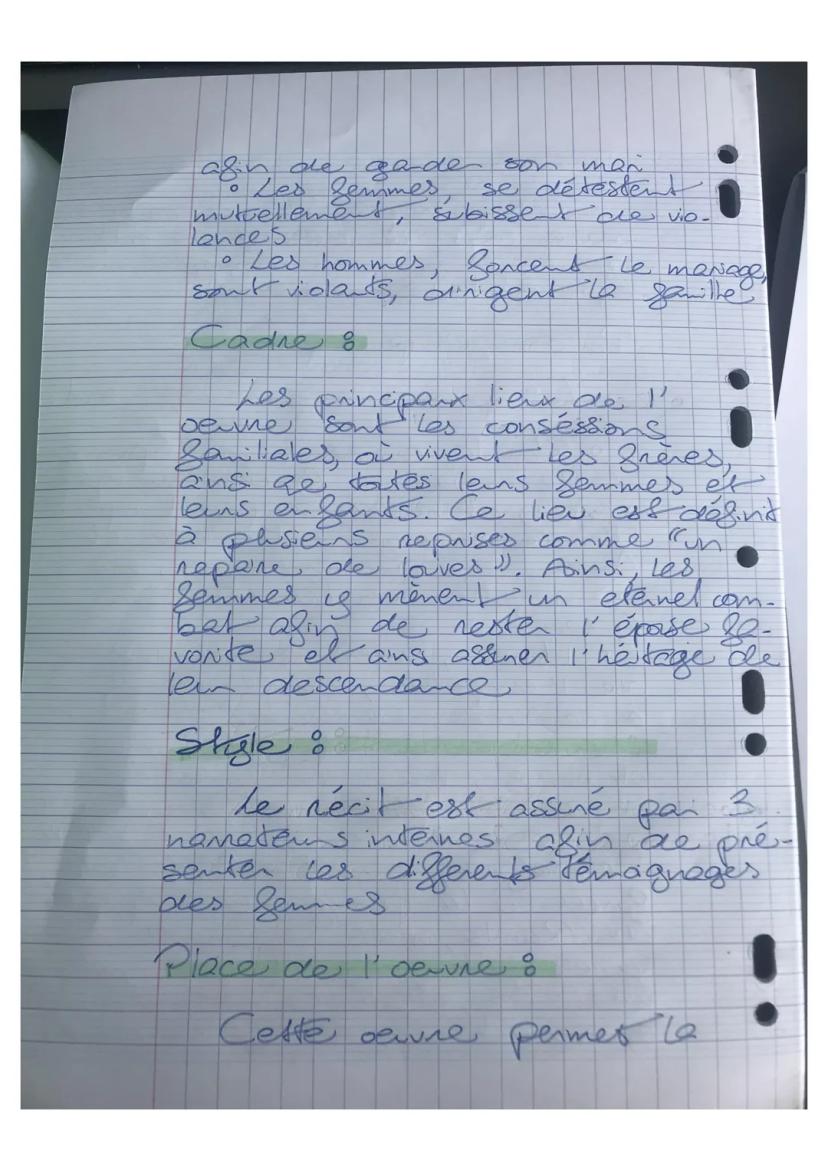 afin de garder son mari
° Les femmes, se détestent
mutuellement, subissent de vio-
lances
° Les hommes, forcent le mariage,
sont violants, dirigent la famille
Cadre :
Les principaux lieux de l'
oeuvre sont les conséssions
familiales, où vivent les frères,
ainsi qe toutes leurs femmes et
leurs enfants. Ce lieu est définit
à plusieurs reprises comme "un
repaire de louves". Ainsi, les
femmes y mènent un eternel com-
bat afin de rester l'épouse fa-
vorite et ains assurer l'héitage de
leur descendance
Style :
Le récit est assuré par 3
narrateurs internes afin de pré-
senter les différents témoignages
des femmes
Place de l'oeuvre :
Cette oeuvre permet la